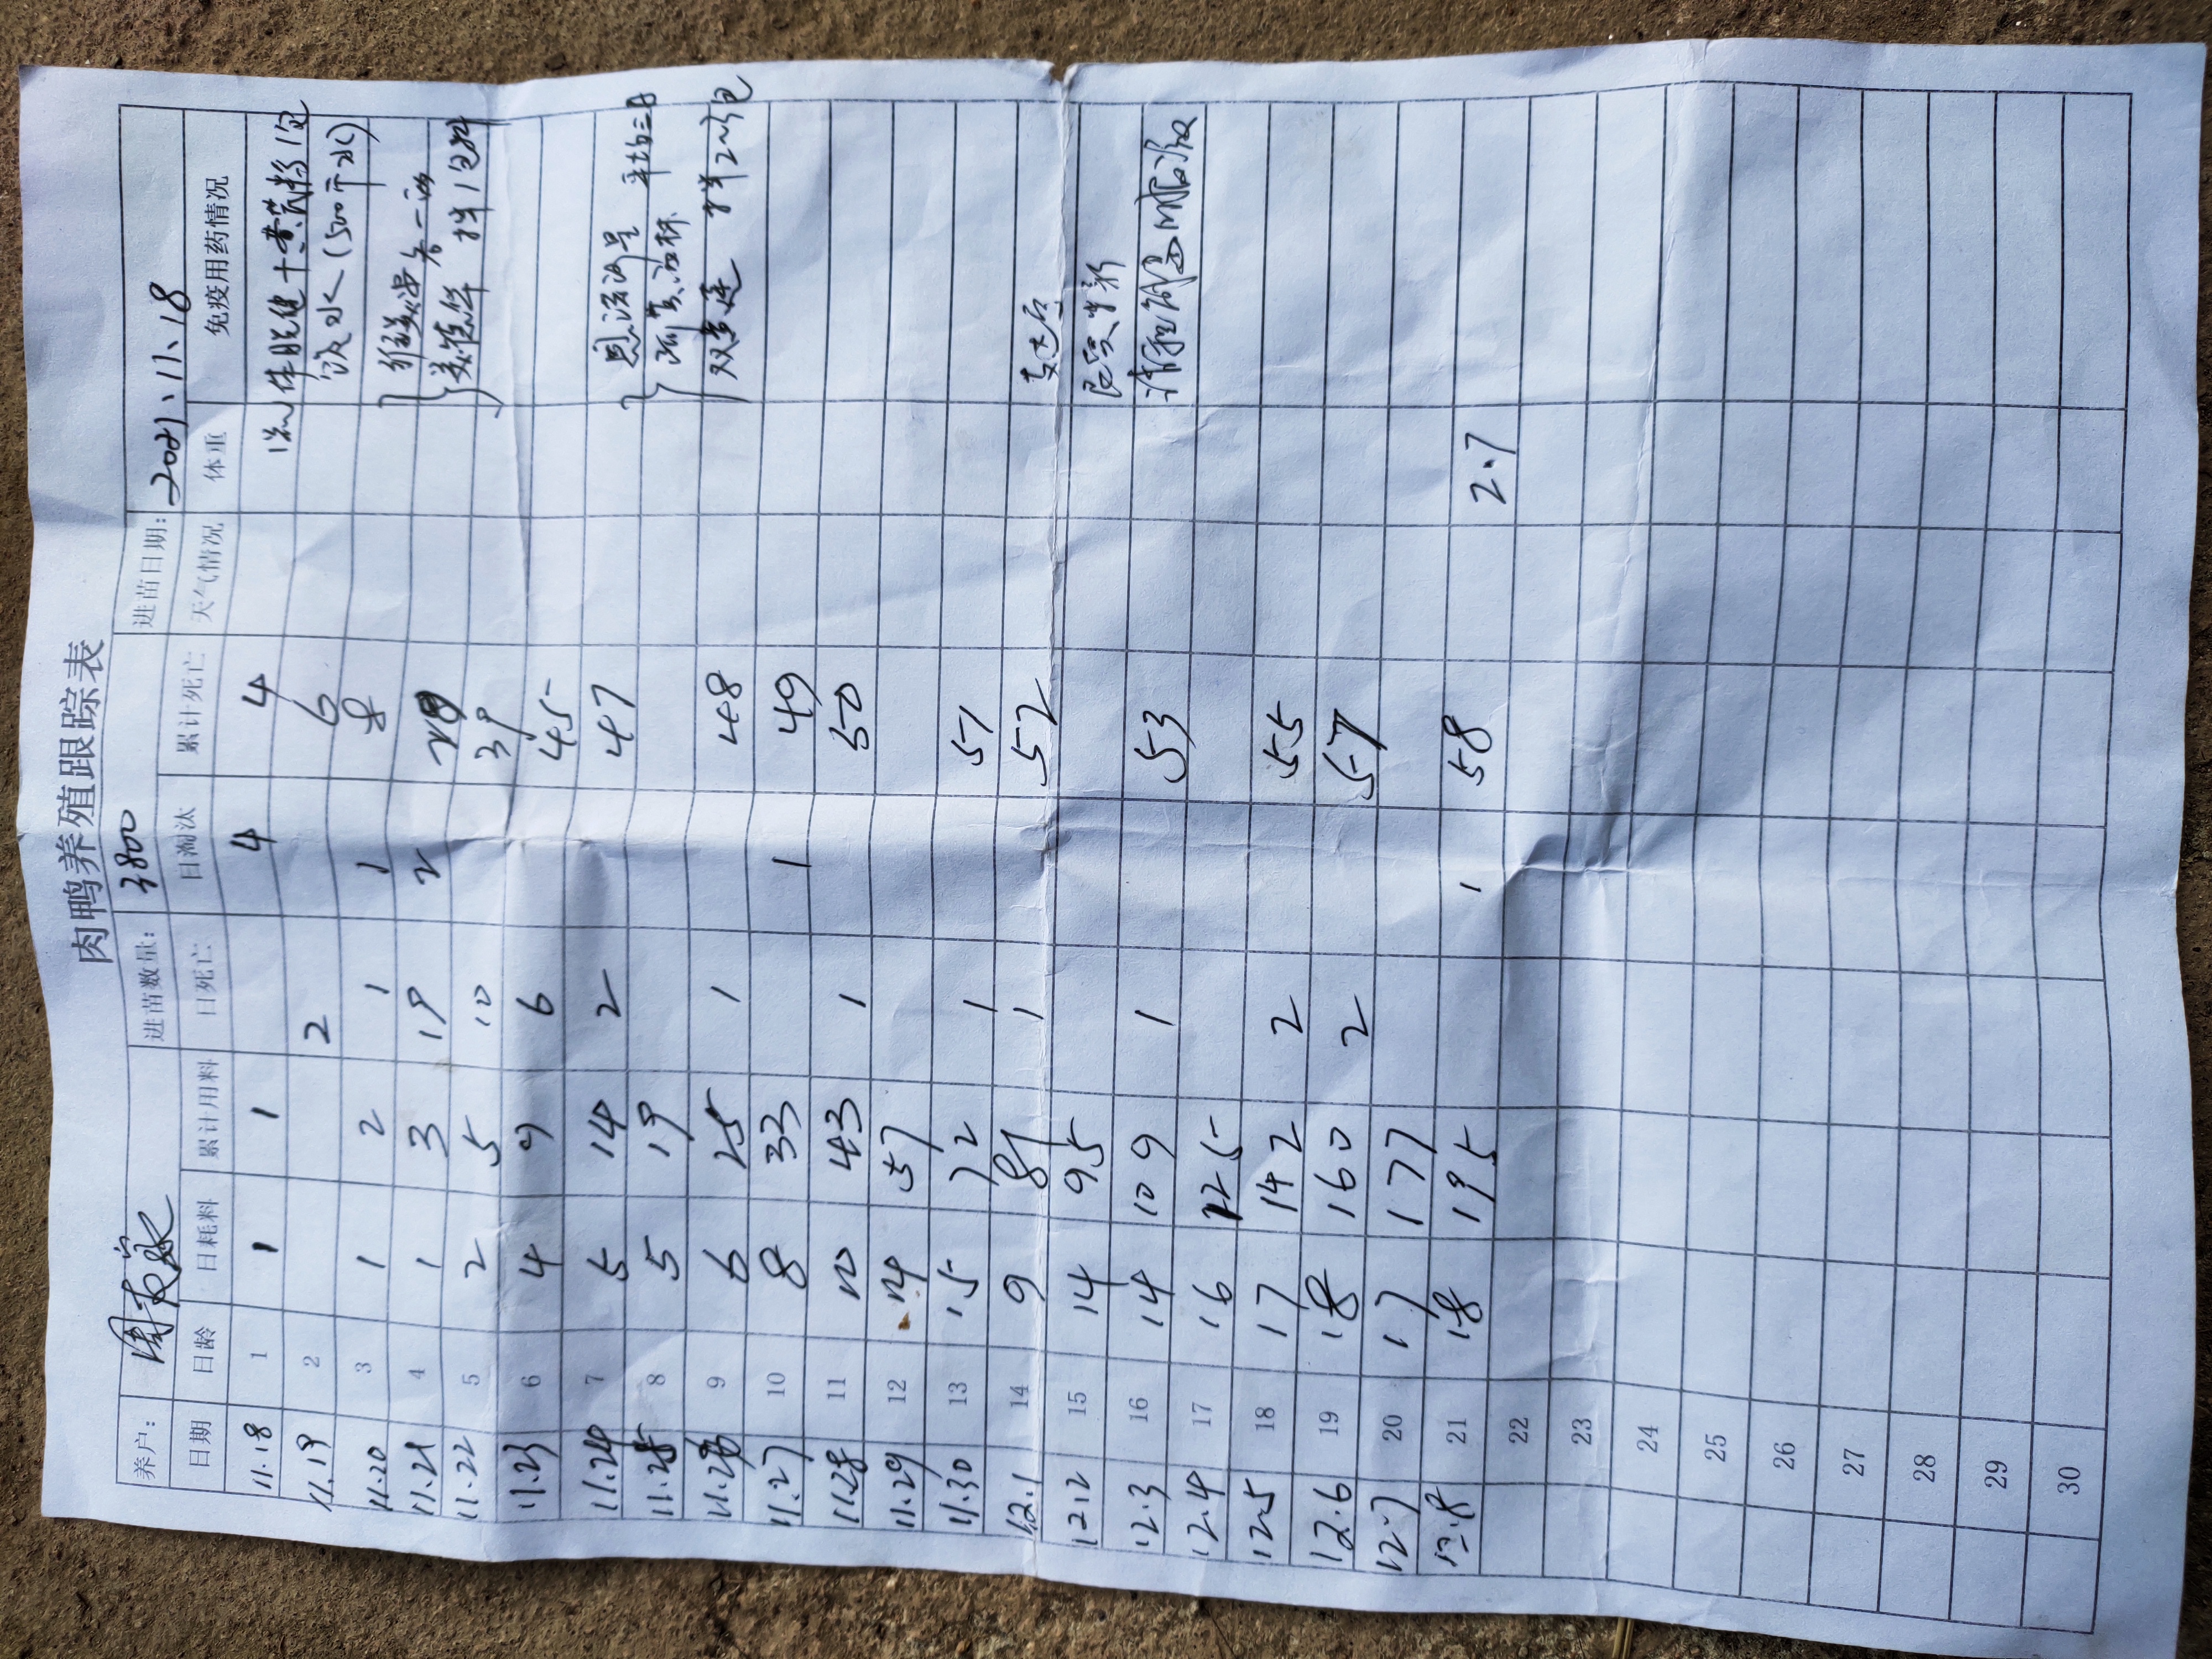 肉鸭养殖跟踪表
养户： 进苗数量： 3800 进苗日期： 2021.11.18
日期 日龄 日耗料 累计用料 日死亡 日淘汰 累计死亡 天气情况 体重 免疫用药情况
11.18 1 1 1 4 4
11.19 2 2 6 饮水（500斤水）
11.20 3 1 2 1 1 8
11.21 4 1 3 19 2
11.22 5 2 5 10 39 拌1包料
11.23 6 4 9 6 45
11.24 7 5 14 2 47
11.25 8 5 19
11.26 9 6 25 1 48 拌2包
11.27 10 8 33 1 49
11.28 11 10 43 1 50
11.29 12 14 57
11.30 13 15 72 1 51
12.1 14 9 81 1 52
12.2 15 14 95
12.3 16 14 109 1 53
12.4 17 16 125
12.5 18 17 142 2 55
12.6 19 18 160 2 57
12.7 20 17 177
12.8 21 18 195 1 58 2.7
22
23
24
25
26
27
28
29
30